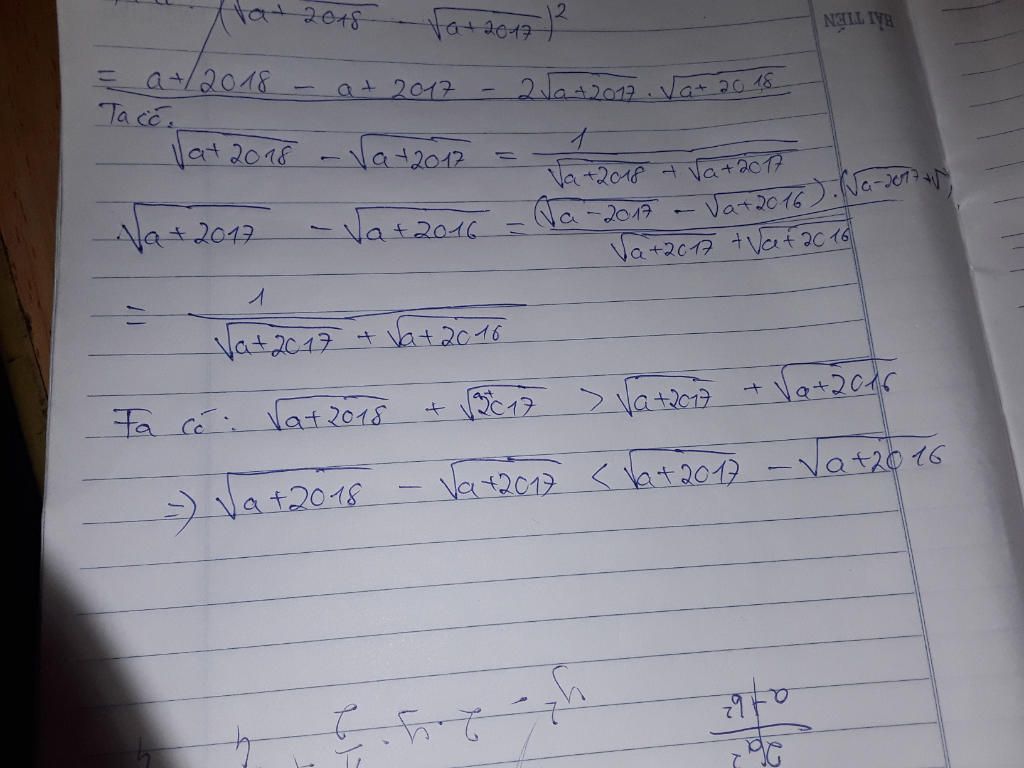 (√a+2018 - √a+2017)²
= a+2018 - a+2017 - 2√a+2017 . √a+2018
Ta có:
√a+2018 - √a+2017 = 1 / (√a+2018 + √a+2017)
√a+2017 - √a+2016 = (√a-2017 - √a+2016).(√a-2017+√ / (√a+2017 + √a+2016)
= 1 / (√a+2017 + √a+2016)
Ta có: √a+2018 + √a+2017 > √a+2017 + √a+2016
=> √a+2018 - √a+2017 < √a+2017 - √a+2016
HẢI TIẾN
y² - 2.y.
2a² / a+b²